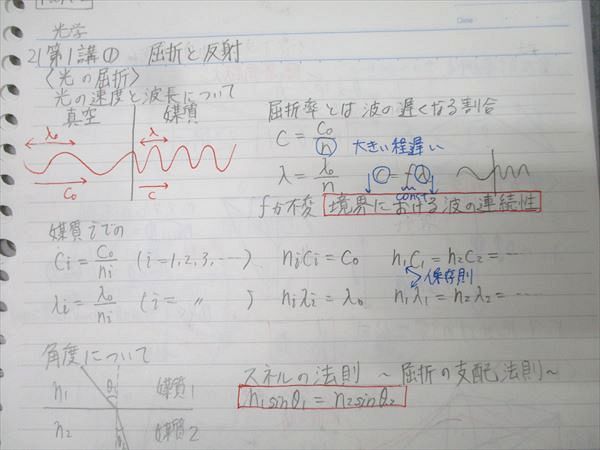 光学
21 第1講① 屈折と反射
〈光の屈折〉
光の速度と波長について
真空 媒質
λ₀ λ
C₀ C
屈折率とは波の遅くなる割合
C = C₀/n 大きい程遅い
λ = λ₀/n C = fλ
const
fが不変 境界における波の連続性
媒質iでの
Ci = C₀/ni (i=1,2,3,…) niCi = C₀ n₁C₁ = n₂C₂ = …
保存則
λi = λ₀/ni (i= 〃 ) niλi = λ₀ n₁λ₁ = n₂λ₂ = …
角度について
θ₁
n₁ 媒質1
n₂ 媒質2
スネルの法則 ～屈折の支配法則～
n₁sinθ₁ = n₂sinθ₂